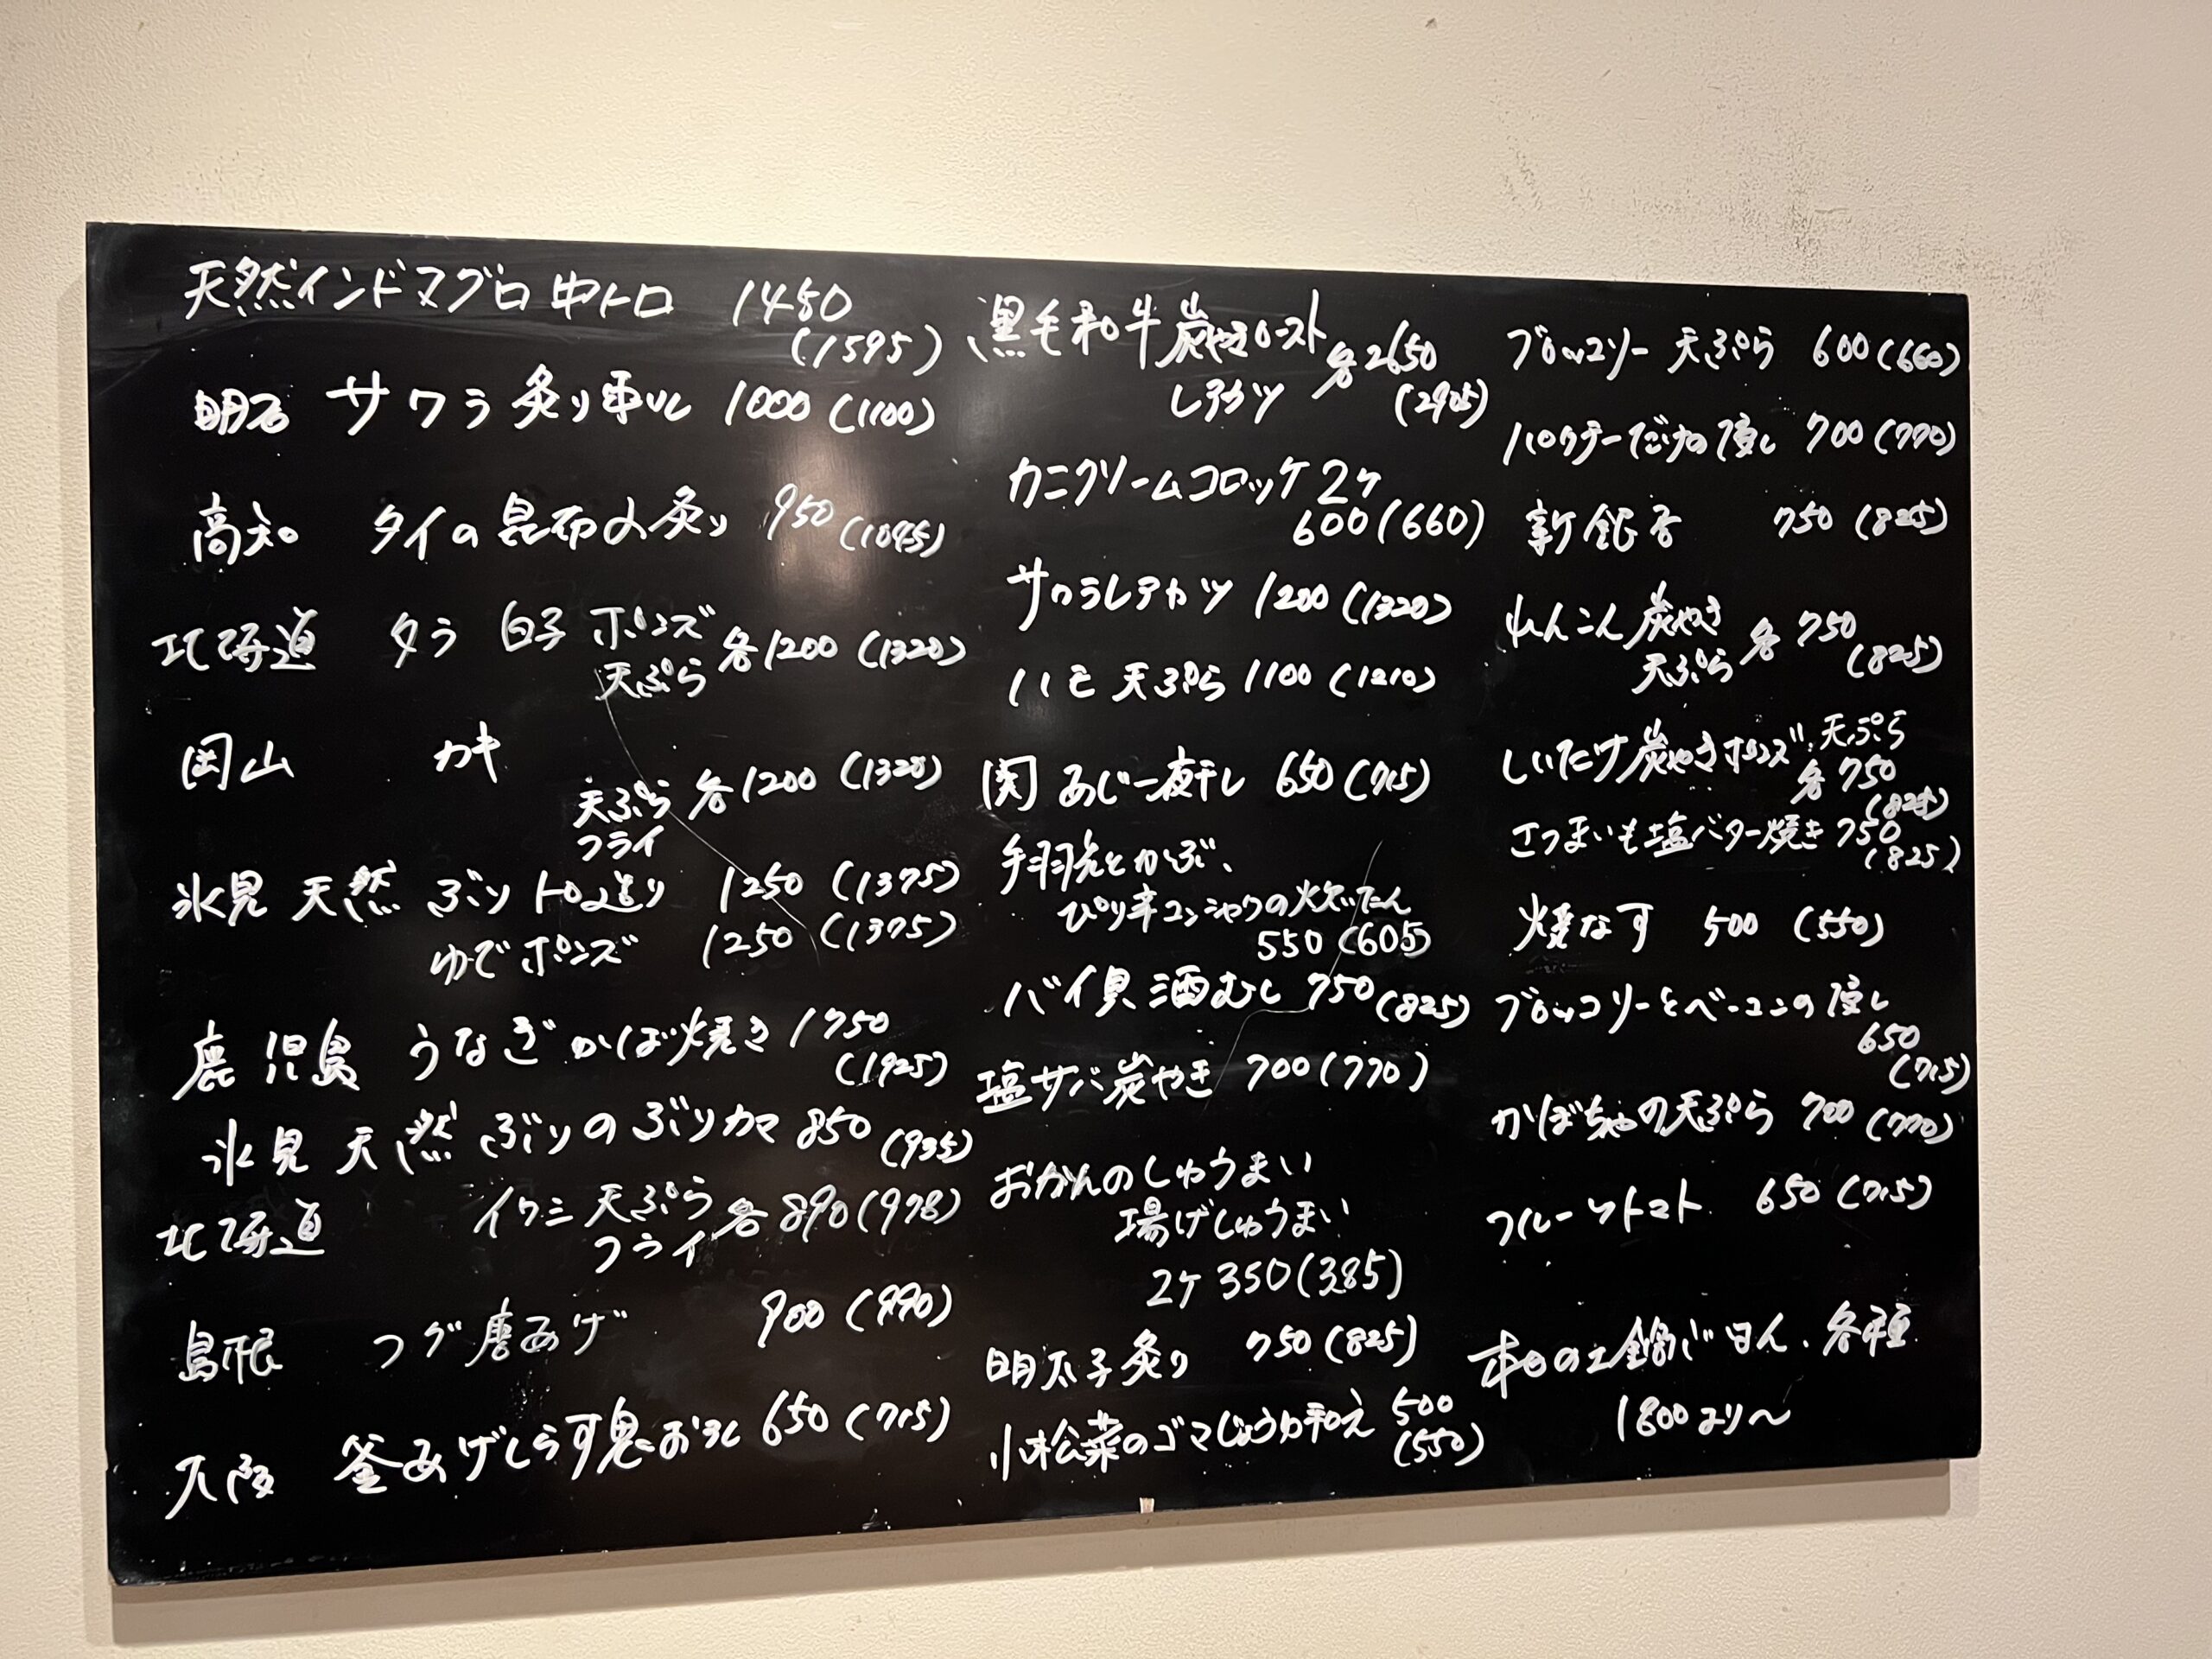 天然インドマグロ中トロ 1450
(1595)
明石 サワラ 炙り 1000(1100)
高知 タイの昆布〆炙り 950(1045)
北海道 タラ 白子 ポンズ
天ぷら 各1200(1320)
岡山 カキ
天ぷら 各1200(1320)
フライ
氷見 天然 ぶり トロ造り 1250(1375)
ゆでポンズ 1250(1375)
鹿児島 うなぎかば焼き 1750
(1925)
氷見 天然 ぶりのぶりカマ 850(935)
北海道 イワシ 天ぷら 各890(978)
フライ
島根 フグ唐あげ 900(990)
大阪 釜あげしらす鬼おろし 650(715)
黒毛和牛炭やきロースト
レアカツ 各2650
(2915)
カニクリームコロッケ2ケ
600(660)
サワラレアカツ 1200(1320)
ハモ天ぷら 1100(1210)
関あじ一夜干し 650(715)
手羽先とかぶ、
ぴり辛コンニャクの炊いたん
550(605)
バイ貝酒むし 750(825)
塩サバ炭やき 700(770)
おかんのしゅうまい
揚げしゅうまい
2ケ 350(385)
明太子炙り 750(825)
小松菜のゴマじょうゆ和え 500
(550)
ブロッコリー天ぷら 600(660)
パクチーだけの浸し 700(770)
新銀杏 750(825)
れんこん炭やき
天ぷら 各750
(825)
しいたけ炭やきポンズ、天ぷら
各750
(825)
さつまいも塩バター焼き 750
(825)
焼なす 500(550)
ブロッコリーとベーコンの浸し
650
(715)
かぼちゃの天ぷら 700(770)
フルーツトマト 650(715)
本日の土鍋ごはん、各種
1800より〜